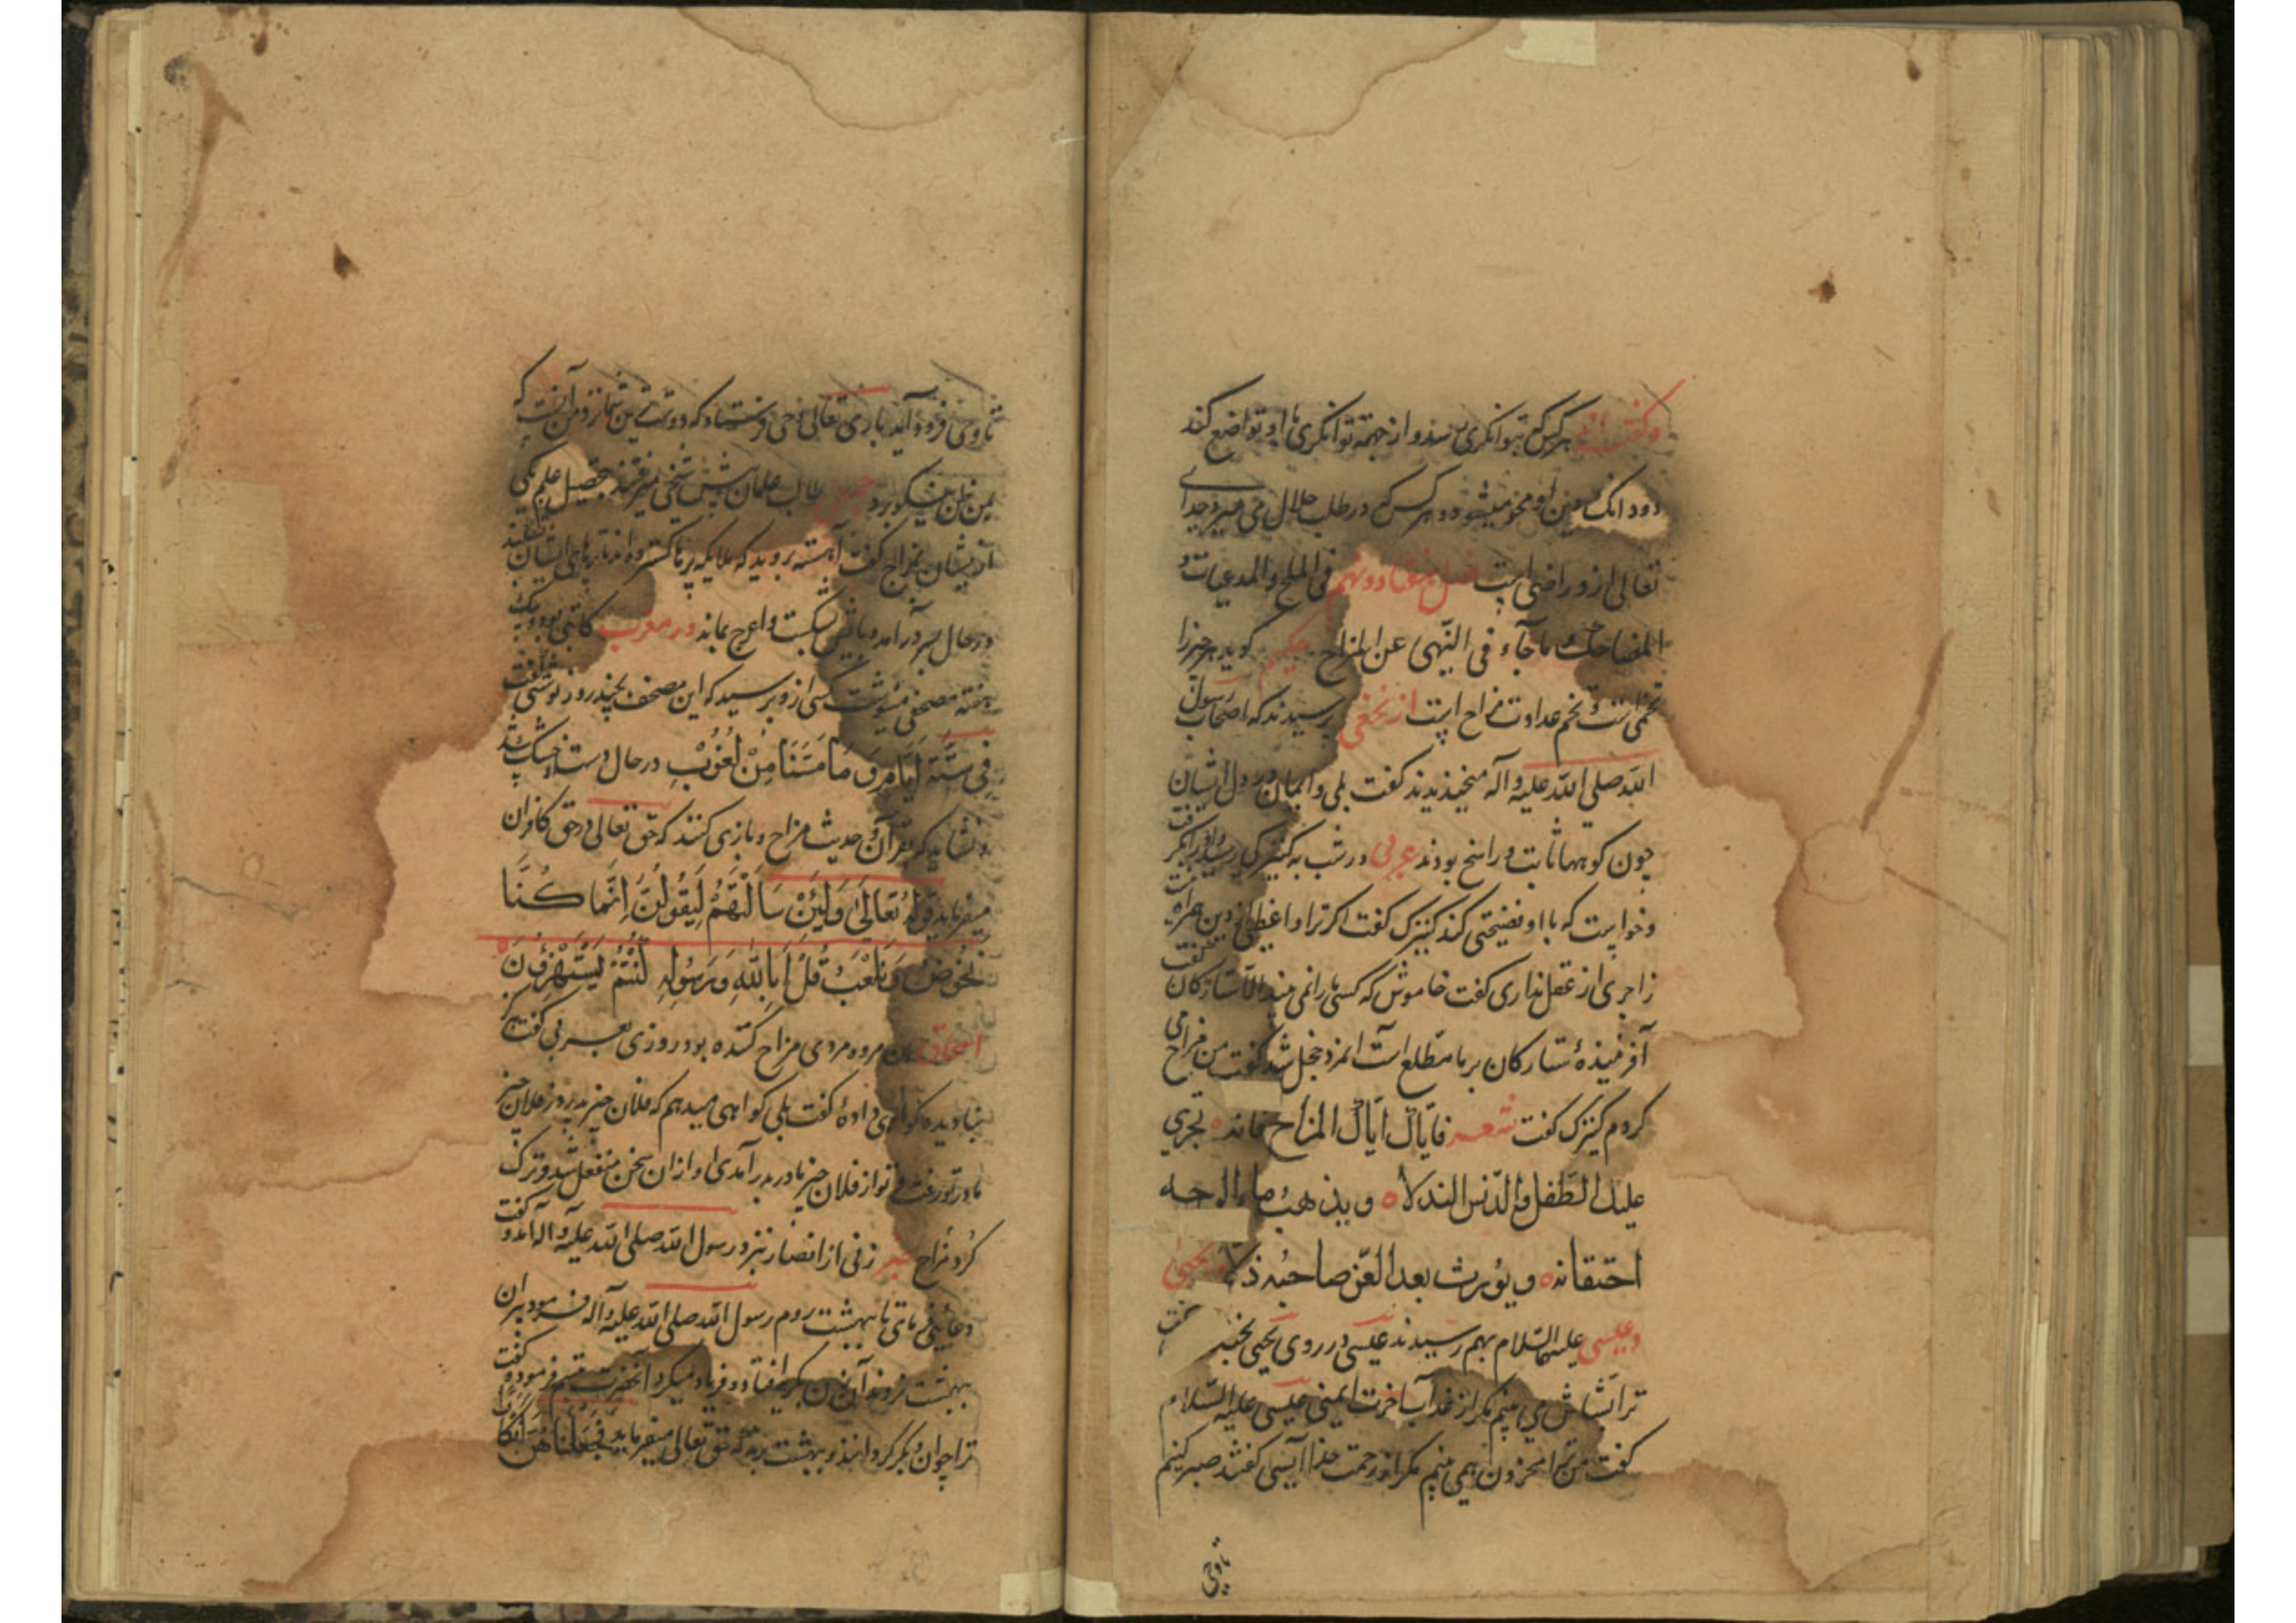 و گفته‌اند هر کس که بتوانگری رسد و از جهة توانگری با او تواضع کند
دو دانک دین او محو میشود و هر کس که در طلب حلال می میرد خدای
تعالی ازو راضی است فصل هفتاد و نهم فی الملح و المدعبات و
المضاحک ما جآء فی النّهی عن المزاح حکیمی کوید هر چیز را
تخمی است و تخم عداوت مزاح است از نخعی پرسیدند که اصحاب رسول
الله صلی الله علیه و آله میخندیدند کفت بلی و ایمان در دل ایشان
چون کوهها ثابت و راسخ بودند عربی در شب به کنیزکی رسید
و خواست که با او فضیحتی کند کنیزک کفت اکر ترا واعظی از دین همراه نیست
زاجری از عقل نداری کفت خاموش که کسی ما را نمی بیند الا ستارکان کفت
آفرینندهٔ ستارکان بر ما مطلع است آنمرد خجل شد کفت من مزاح می
کردم کنیزک کفت شعر فایاک ایاک المزاح فانه یجری
علیک الطفل والدّنس النذلا و یذهب ماء الوجه
احتقانه و یورث بعد العزّ صاحبه ذلا یحیی
و عیسی علیهما السّلام بهم رسیدند عیسی در روی یحیی بخندید کفت
ترا بشاش می بینم مکر از عذاب آخرت ایمنی عیسی علیه السّلام
کفت من ترا محزون همی بینم مکر از رحمت خدا آیسی کفتند صبر کنیم
تا وحی
تا وحی فرود آید باری تعالی وحی فرستاد که دوسترین شما نزد من آنست که
بمن ظن نیکو برد جمعی طالب علمان پیش شیخی میرفتند بتحصیل علم یکی
از ایشان بمزاح کفت آهسته بروید که ملایکه پرها کسترده‌اند تا پرهای ایشان نشکنید
در حال بسر در آمد و پایش بشکست و اعرج بماند در مغرب کاتبی بود و بیک
هفته مصحفی می‌نوشت کسی ازو پرسید که این مصحف بچند روز نوشتی کفت
فی ستّة ایّام و ما مسّنا من لغوب در حال دست او خشک شد
و نشاید که بقرآن و حدیث مزاح و بازی کنند که حق تعالی در حق کافران
میفرماید قوله تعالی ولئن سألتهم لیقولنّ انّما کنّا
نخوض و نلعب قل أبالله و رسوله کنتم یستهزؤن
مردی مزاح کننده بود روزی بعربی کفت هرکز
بنادیده کواهی داده کفت بلی کواهی میدهم که فلان چیز پدر در فلان چیز
مادر تو رفت و تو از فلان چیز مادر بدر آمدی او ازان سخن منفعل شد و ترک
کرد مزاح خبر زنی از انصار نزد رسول الله صلی الله علیه و آله آمد و کفت
دعائی فرمای تا ببهشت روم رسول الله صلی الله علیه و آله فرمود پیران
ببهشت نروند آن زن بکریه افتاد و فریاد میکرد آنحضرت تبسّم فرمود و کفت
ترا جوان و بکر کردانند و ببهشت برند که حق تعالی میفرماید فجعلناهنّ ابکارا